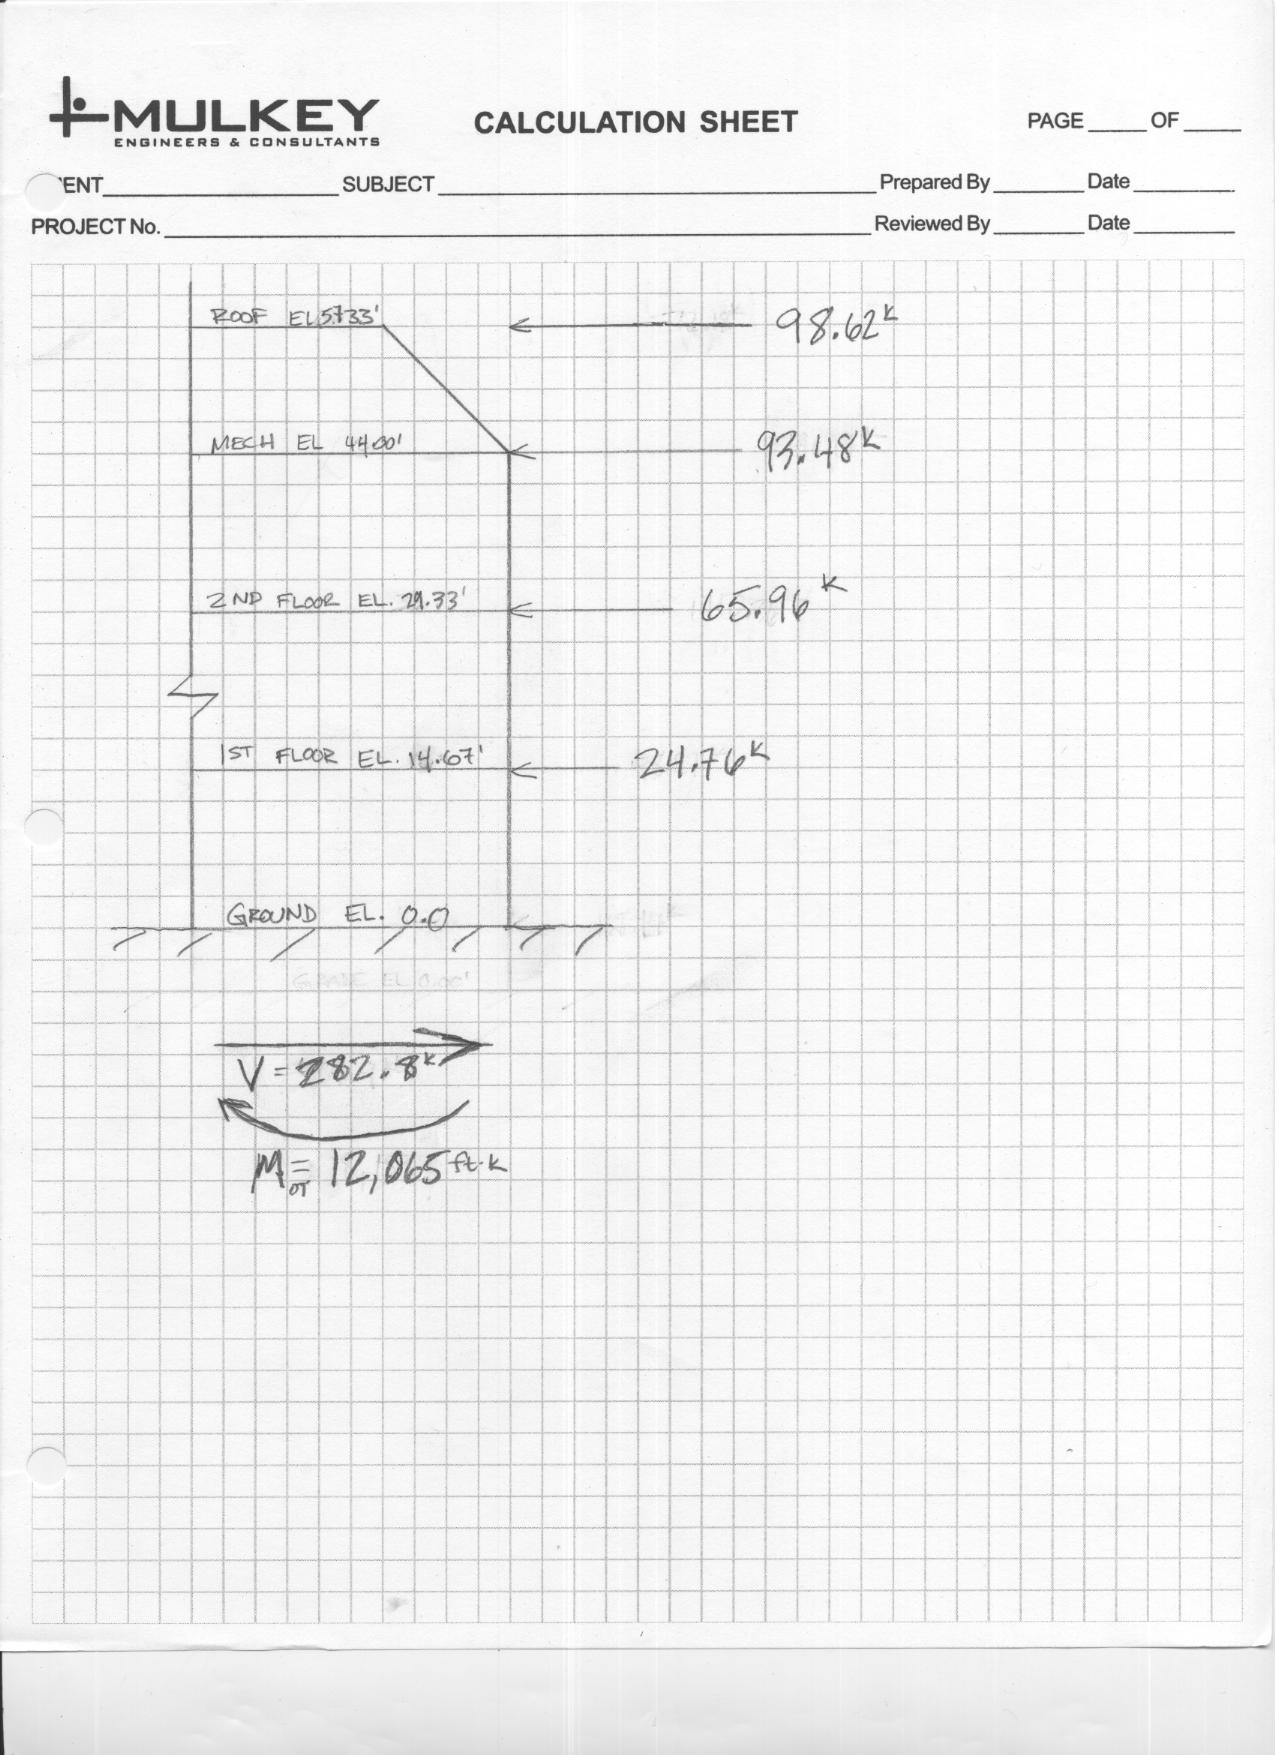 MULKEY
ENGINEERS & CONSULTANTS
CALCULATION SHEET
PAGE OF
IENT SUBJECT Prepared By Date
PROJECT No. Reviewed By Date
ROOF EL 57.33'
98.62K
MECH EL 44.00'
93.48K
2ND FLOOR EL. 29.33'
65.96K
1ST FLOOR EL. 14.67'
24.76K
GROUND EL. 0.0
GRADE EL 0.00'
V = 282.8K
MOT = 12,065 ft-k